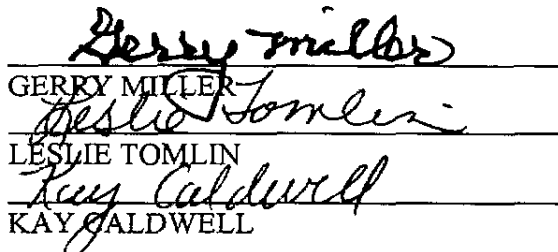 Gerry Miller
GERRY MILLER
Leslie Tomlin
LESLIE TOMLIN
Kay Caldwell
KAY CALDWELL